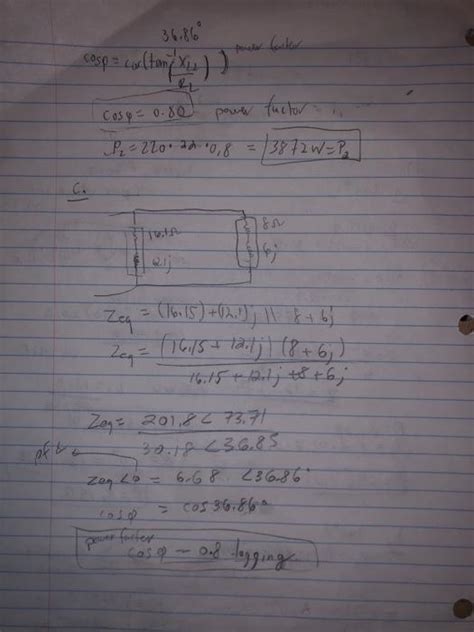 36.86°
cosφ = cos(tan⁻¹(X₂/R₂)) power factor
cosφ = 0.80 power factor
P₂ = 220·22·0,8 = 3872W = P₂
C.
16.1Ω 8Ω
12.1j 6j
Zeq = (16.15)+(12.1)j || 8+6j
Zeq = (16.15 + 12.1j)(8+6j)
16.15 + 12.1j +8+6j
Zeq = 201.8 <73.71
30.18 <36.85
Zeq<φ = 6.68 <36.86°
cosφ = cos36.86°
power factor
cosφ - 0.8 lagging